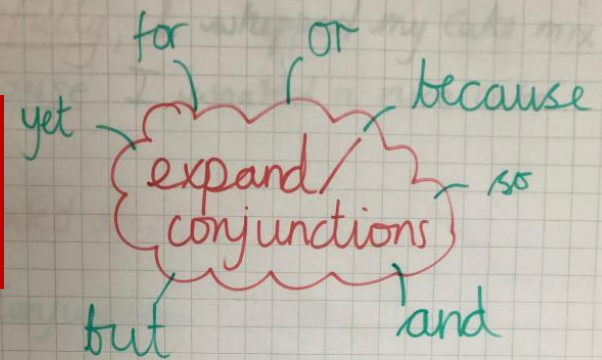 for
or
because
yet
expand/
so
conjunctions
but
and